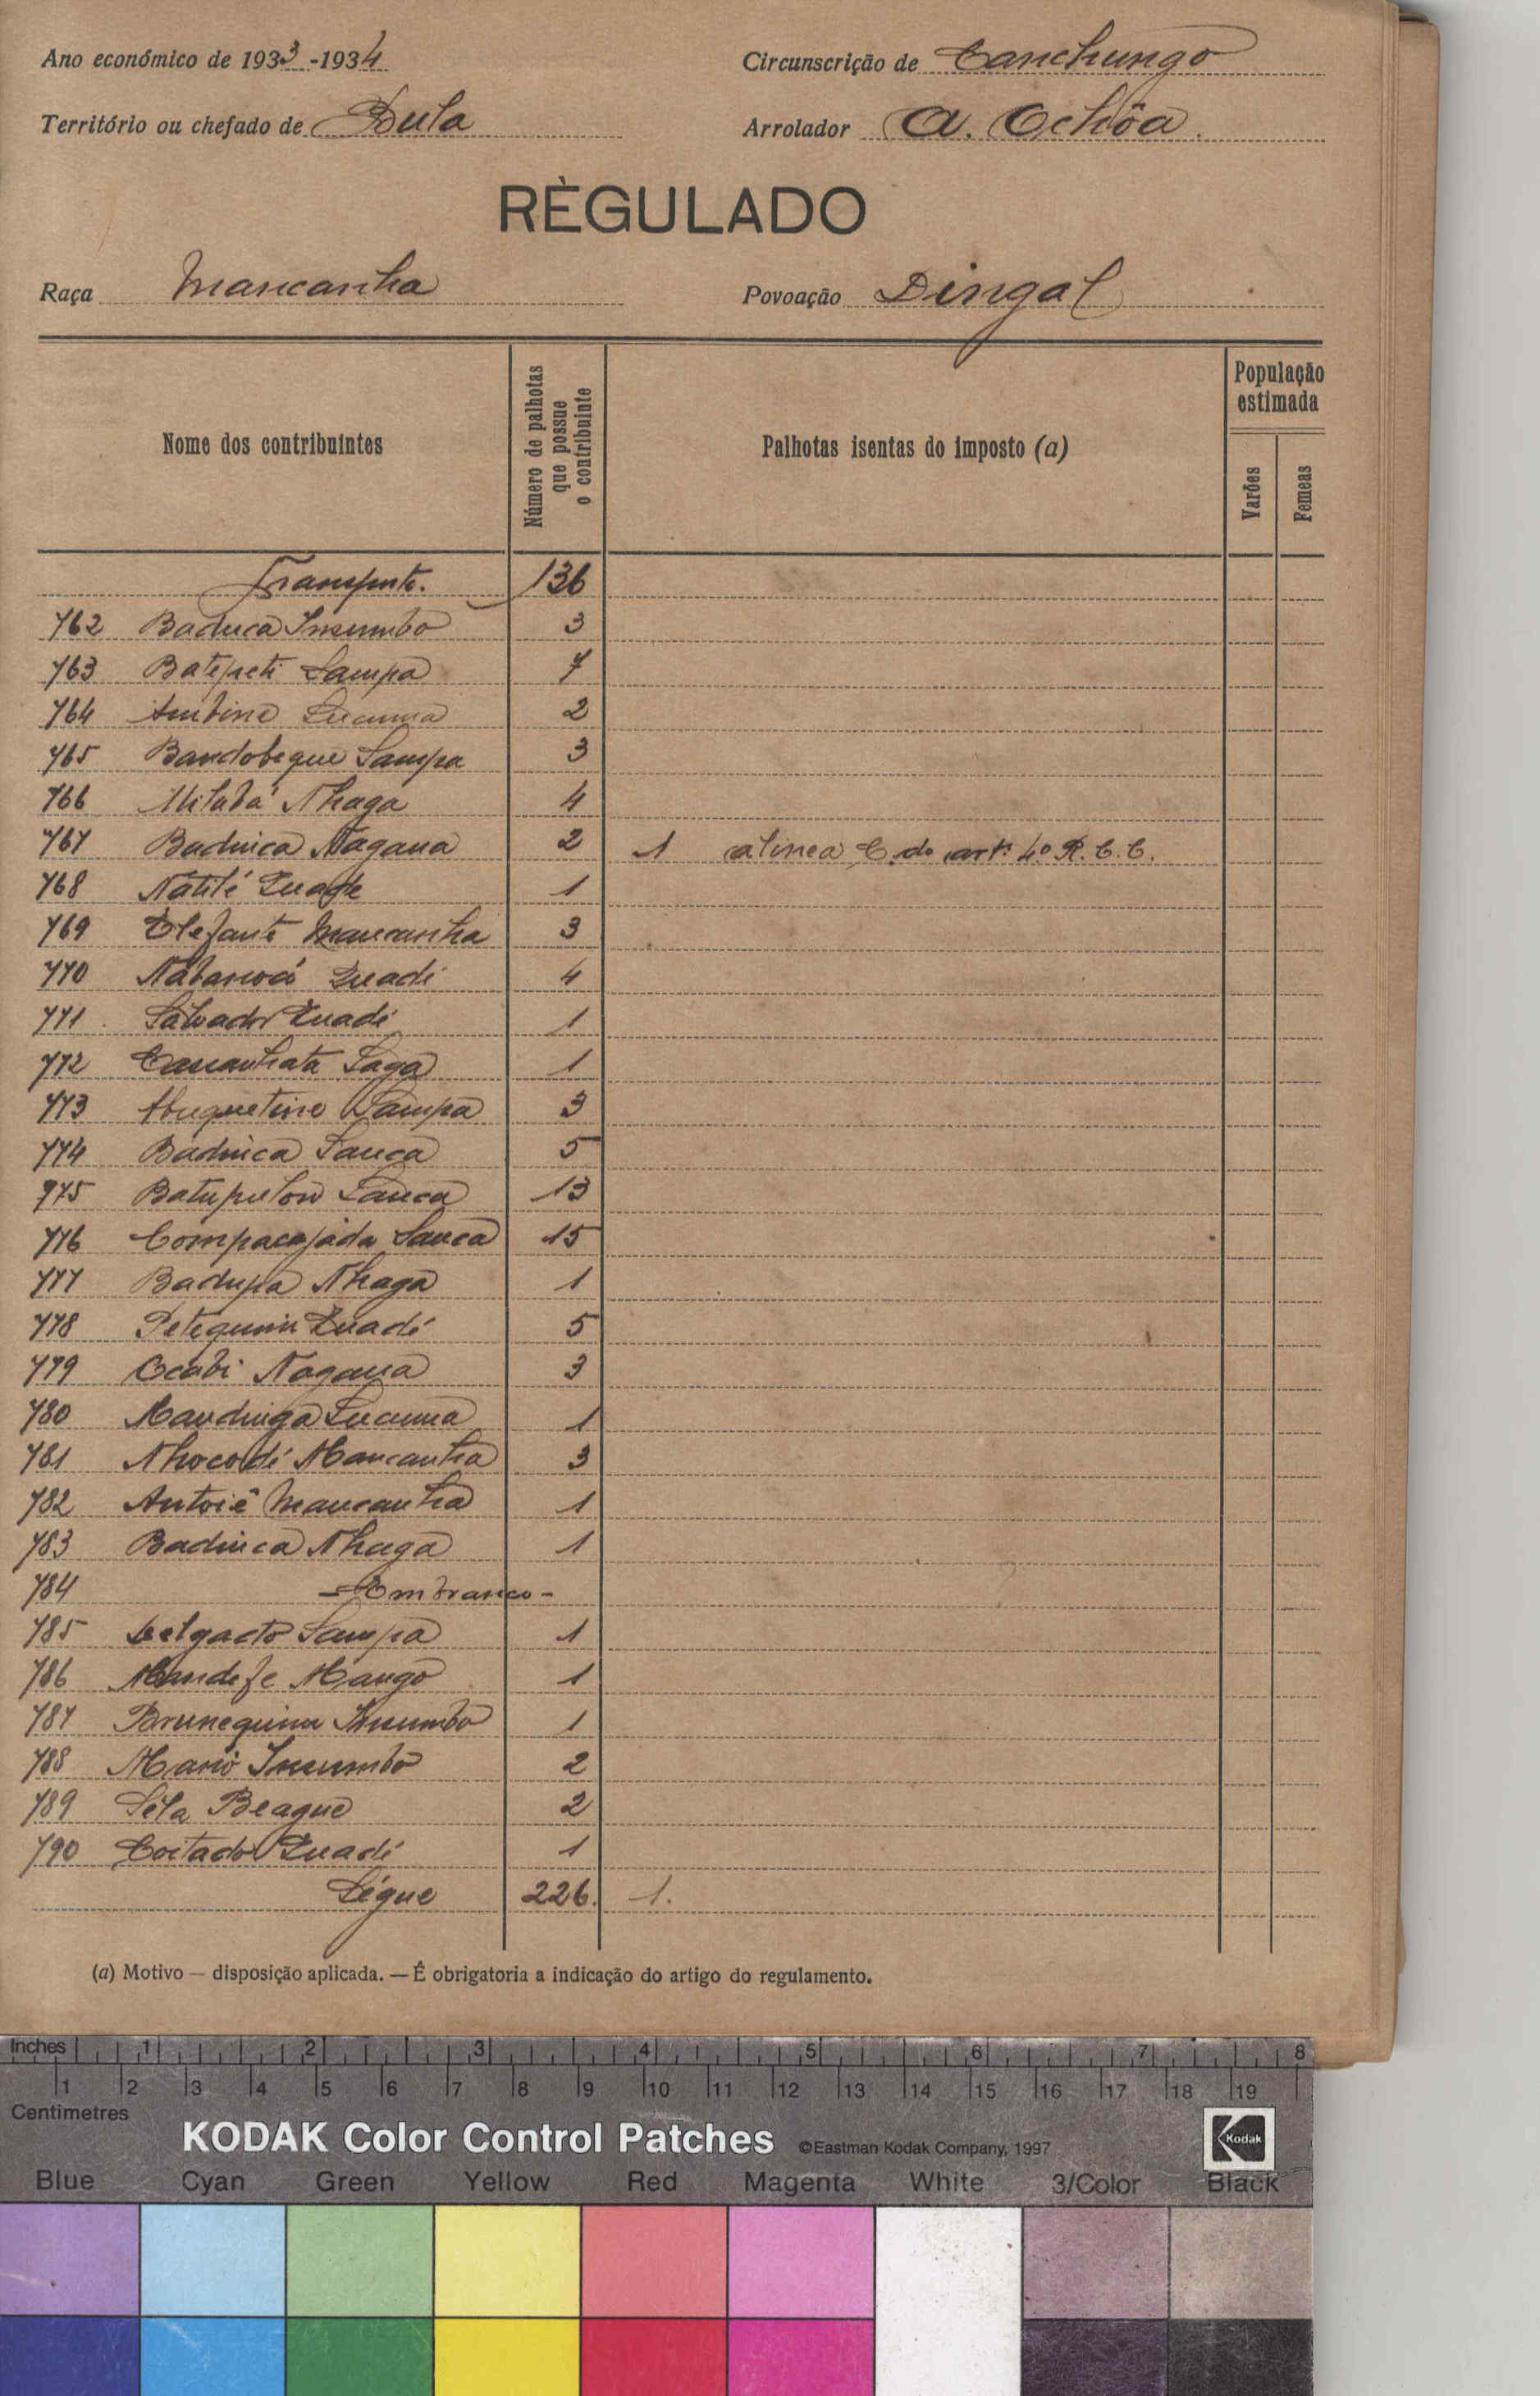 Ano económico de 1933-1934
Circunscrição de Canchungo
Território ou chefado de Bula
Arrolador A. Ochôa.
RÈGULADO
Raça Mancanha
Povoação Dingal
Nome dos contribuintes
Número de palhotas que possue o contribuinte
Palhotas isentas do imposto (a)
População estimada
Varões
Femeas
Transporte. 136
762 Baduca Insumbo 3
763 Batepeti Sampa 7
764 2
765 Bandobeque Sampa 3
766 Nhaga 4
767 Baduica Nagana 2 1 alinea C. do artº 4º R. C. C.
768 1
769 Elefante Mancanha 3
770 4
771 Salvador 1
772 1
773 Sampa 3
774 Baduica Sanca 5
975 Sanca 13
776 Compacajada Sanca 15
777 Badupa Nhaga 1
778 5
779 Ocabi Nagana 3
780 Mandinga 1
781 Nhocodi Mancanha 3
782 Antoiê Mancanha 1
783 Baduica Nhaga 1
784 - Em branco -
785 Delgado Sampa 1
786 Mandefe Mango 1
787 Brunequim Insumbo 1
788 Mario Insumbo 2
789 Séla Beague 2
790 Coitado 1
Ségue 226. 1.
(a) Motivo — disposição aplicada. — É obrigatoria a indicação do artigo do regulamento.
Inches 1 2 3 4 5 6 7 8
1 2 3 4 5 6 7 8 9 10 11 12 13 14 15 16 17 18 19
Centimetres
KODAK Color Control Patches ©Eastman Kodak Company, 1997 Kodak
Blue Cyan Green Yellow Red Magenta White 3/Color Black